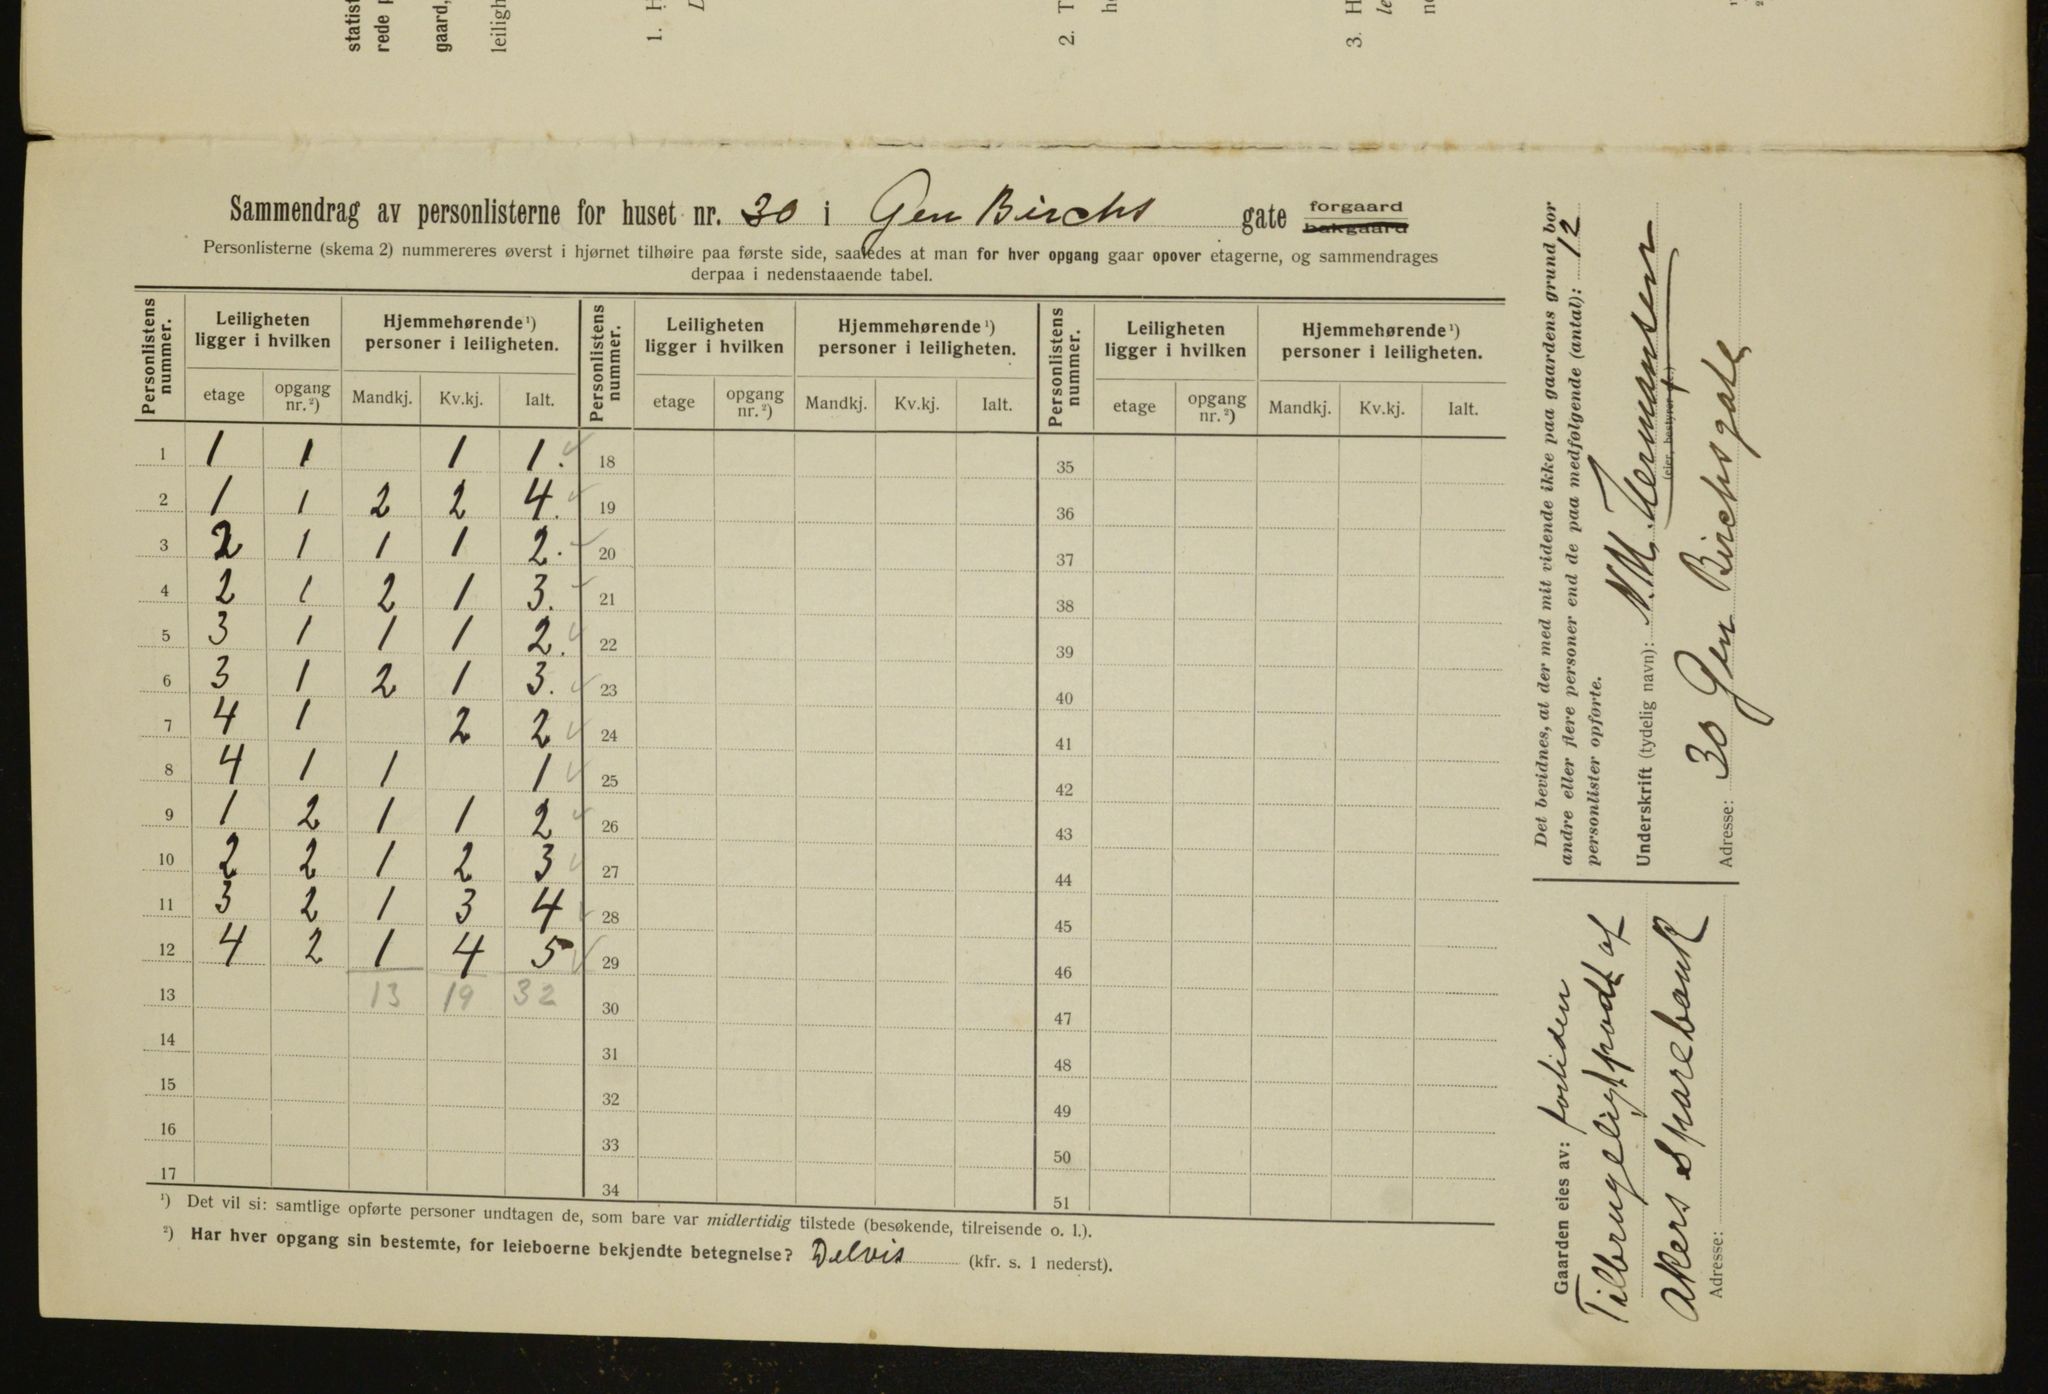 statist
rede p
gaard,
leiligh
1. H
2. T
3. H
le
Sammendrag av personlisterne for huset nr. 30 i Gen Birchs gate forgaard bakgaard
Personlisterne (skema 2) nummereres øverst i hjørnet tilhøire paa første side, saaledes at man for hver opgang gaar opover etagerne, og sammendrages
derpaa i nedenstaaende tabel.
Personlistens nummer. | Leiligheten ligger i hvilken | Hjemmehørende ¹) personer i leiligheten. | Personlistens nummer. | Leiligheten ligger i hvilken | Hjemmehørende ¹) personer i leiligheten. | Personlistens nummer. | Leiligheten ligger i hvilken | Hjemmehørende ¹) personer i leiligheten.
etage | opgang nr. ²) | Mandkj. | Kv.kj. | Ialt. | etage | opgang nr. ²) | Mandkj. | Kv.kj. | Ialt. | etage | opgang nr. ²) | Mandkj. | Kv.kj. | Ialt.
1 | 1 | 1 | | 1 | 1. | 18 | 35
2 | 1 | 1 | 2 | 2 | 4. | 19 | 36
3 | 2 | 1 | 1 | 1 | 2. | 20 | 37
4 | 2 | 1 | 2 | 1 | 3. | 21 | 38
5 | 3 | 1 | 1 | 1 | 2. | 22 | 39
6 | 3 | 1 | 2 | 1 | 3. | 23 | 40
7 | 4 | 1 | | 2 | 2 | 24 | 41
8 | 4 | 1 | 1 | | 1 | 25 | 42
9 | 1 | 2 | 1 | 1 | 2 | 26 | 43
10 | 2 | 2 | 1 | 2 | 3 | 27 | 44
11 | 3 | 2 | 1 | 3 | 4 | 28 | 45
12 | 4 | 2 | 1 | 4 | 5 | 29 | 46
13 | | | 13 | 19 | 32 | 30 | 47
14 | 31 | 48
15 | 32 | 49
16 | 33 | 50
17 | 34 | 51
¹) Det vil si: samtlige opførte personer undtagen de, som bare var midlertidig tilstede (besøkende, tilreisende o. l.).
²) Har hver opgang sin bestemte, for leieboerne bekjendte betegnelse? Delvis (kfr. s. 1 nederst).
Det bevidnes, at der med mit vidende ikke paa gaardens grund bor
andre eller flere personer end de paa medfølgende (antal): 12
personlister opførte.
Underskrift (tydelig navn): N. M. Hermansen
(eier, bestyrer
Adresse: 30 Gen Birchsgate
Gaarden eies av: fortiden
Tilbrugeligtpodt af
Akers Sparebank
Adresse: